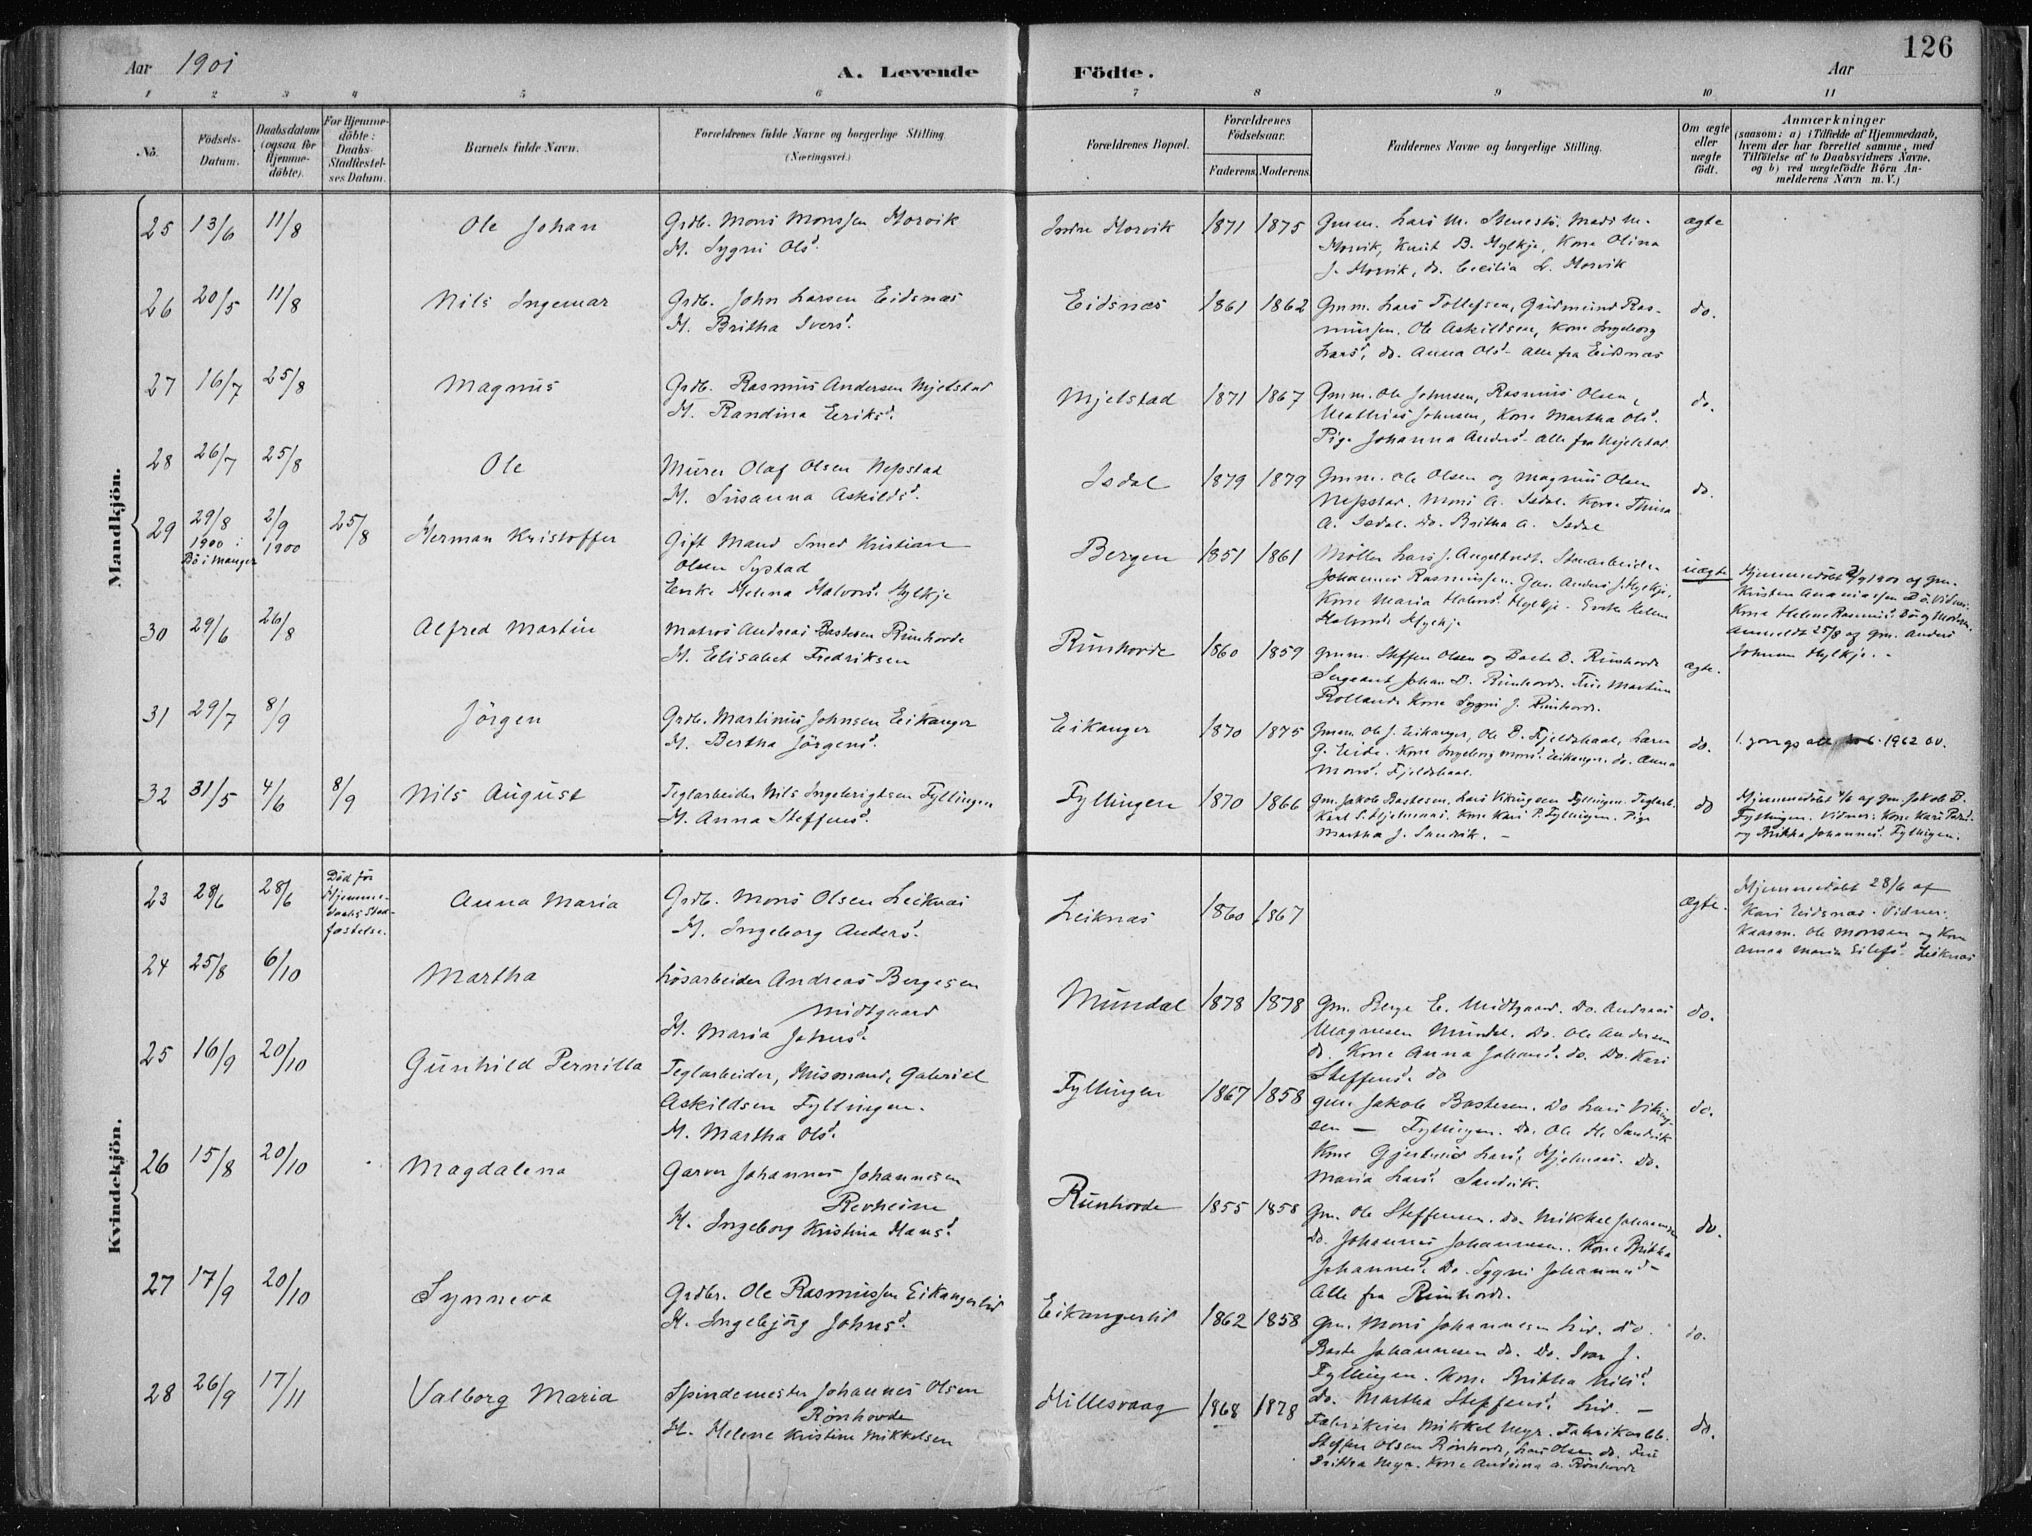 126
Aar 1901
A. Levende Födte.
Aar
1 2 3 4 5 6 7 8 9 10 11
No.
Födsels-Datum.
Daabsdatum (ogsaa for Hjemme-döbte).
For Hjemme-döbte: Daabs-Stadfæstel-ses Datum.
Barnets fulde Navn.
Forældrenes fulde Navne og borgerlige Stilling. (Næringsvei.)
Forældrenes Bopæl.
Forældrenes Födselsaar.
Faderens. Moderens.
Faddernes Navne og borgerlige Stilling.
Om ægte eller uægte födt.
Anmærkninger
(saasom: a) i Tilfælde af Hjemmedaab,
hvem der har forrettet samme, med
Tilföielse af to Daabsvidners Navne,
og b) ved uægtefödte Börn An-
melderens Navn m. V.)
Mandkjön.
25 13/6 11/8 Ole Johan Grdb. Mons Monssen Horvik
H. Sygni Olsd. Indre Horvik 1871 1875 Gmm. Lars M. Stenestö, Mads M.
Horvik, Knut B. Hylkje, Kone Olina
J. Horvik, do. Cecilia L. Horvik ægte
26 20/5 11/8 Nils Ingemar Grdb. John Larsen Eidsnæs
H. Britha Iversd. Eidsnæs 1861 1862 Gmm. Lars Tollefsen, Gudmund Ras-
mussen, Ole Askildsen, Kone Ingeborg
Larsd, do. Anna Olsd. Alle fra Eidsnæs do.
27 16/7 25/8 Magnus Grdb. Rasmus Andersen Mjelstad
H. Randina Eeriksd. Mjelstad 1871 1867 Gmm. Ole Johnsen, Rasmus Olsen,
Matthias Johnsen, Kone Martha Olsd.
Pige Johanna Andersd. Alle fra Mjelstad do.
28 26/7 25/8 Ole Murer Olaf Olsen Nepstad
H. Susanna Askildsd. Isdal 1879 1879 Gmm. Ole Olsen og Magnus Olsen
Nepstad. Mons A. Isdal. Kone Thina
A. Isdal. Do. Britha A. Isdal do.
29 29/8 1900 i Bö i Manger 2/9 1900 25/8 Herman Kristoffer Gift Mand Smed Kristian
Olsen Systad
Enke Helena Halvorsd. Hylkje Bergen 1851 1861 Møller Lars J. Stenarbeider
Johannes Rasmussen. Gm. Anders J. Hylkje,
Kone Maria Halvorsd. Hylkje. Enke Helene
Halvorsd. Hylkje uægte Hjemmedöbt 2/9 1900 af Gm.
Kristen Ananiassen Bö. Vidner:
Kone Helene Rasmusd. Bö og Moderen.
Anmeldt 25/8 af Gm. Anders
Johnsen Hylkje. -
30 29/6 26/8 Alfred Martin Matros Andreas Bastesen Runhovde
H. Elisabet Fredriksen Runhovde 1860 1859 Gmm. Steffen Olsen og Baste B. Runhovde
Sergeant Johan B. Runhovde. Frue Martina
Rolland. Kone Sygni J. Runhovde. ægte.
31 29/7 8/9 Jörgen Grdb. Martinus Johnsen Eikanger
H. Bertha Jörgensd. Eikanger 1870 1875 Gmm. Ole J. Eikanger, Ole B. Fjeldskaal, Lars
G. Eide. Kone Ingeborg Monsd. Eikanger. do. Anna
Monsd. Fjeldskaal. do. 1962
32 31/5 4/6 8/9 Nils August Teglarbeider Nils Ingebrigtsen Fyllingen
H. Anna Steffensd. Fyllingen 1870 1866 Gm. Jakob Bastesen. Lars Vikingsen Fyllingen. Teglarb.
Karl S. Hjelmaas. Kone Kari P. Fyllingen. Pige
Martha J. Sandvik. - do Hjemmedöbt 4/6 af Gm. Jakob B.
Fyllingen. Vidner: Kone Kari Pedersd.
og Britha Johannesd. Fyllingen.
Kvindekjön.
23 28/6 28/6 Död för Hjemme-daabs Stad-fæstelse. Anna Maria Grdb. Mons Olsen Leiknæs
H. Ingeborg Andersd. Leiknæs 1860 1867 ægte. Hjemmedöbt 28/6 af
Kari Eidsnæs. Vidner:
Kaarm. Ole Monsen og Kone
Anna Maria Eilefsd. Leiknæs
24 25/8 6/10 Martha Lösarbeider Andreas Bergesen
Midtgaard
H. Maria Johnsd. Mundal 1878 1878 Gm. Berge E. Midtgaard. Do. Andreas
Magnesen Mundal. Do. Ole Andersen
do. Kone Anna Johansd. do. Do. Kari
Steffensd. do do.
25 16/9 20/10 Gunhild Pernilla Teglarbeider, Husmand, Gabriel
Askildsen Fyllingen.
H. Martha Olsd. Fyllingen 1867 1858 Gm. Jakob Bastesen. Do Lars Viking-
sen — Fyllingen. Do. Ole H. Sandvik
Kone Gjertrud Larsd, Hjelmaas. Do.
Maria Larsd. Sandvik. do.
26 15/8 20/10 Magdalena Garver Johannes Johannesen
Revheim
H. Ingeborg Kristina Hansd. Runhovde 1855 1858 Gm. Ole Steffensen. Do. Mikkel Johannesen
Do. Johannes Johannesen. Kone Britha
Johannesd. Do. Sygni Johannesd -
Alle fra Runhovde. do.
27 17/9 20/10 Synneva Grdbr. Ole Rasmussen Eikangerlid
H. Ingebjörg Johnsd. Eikangerlid 1862 1858 Gm. Mons Johannesen Lid. Do.
Baste Johannesen do. Do. Ivar J.
Fyllingen. Kone Britha Nilsd.
Do. Martha Steffensd. Lid. — do.
28 26/9 17/11 Valborg Maria Spindemester Johannes Olsen
Rönhovde
H. Helene Kristine Mikkelsen Hillesvaag 1868 1878 Fabrikeier Mikkel Myr. Fabrikarb.
Steffen Olsen Rönhovde, Lars Olsen do. Frue
Britha Myr. Kone Andrina A. Rönhovde do.